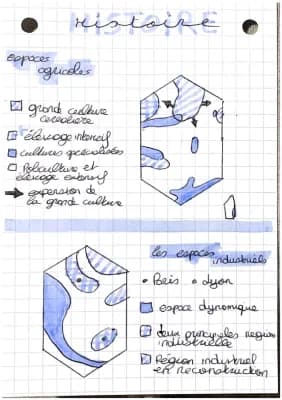 HISTOIRE
Histoire
espaces
agricoles
grande culture
céréalière
élevage intensif
cultures spécialisées
Polyculture et
élevage extensif
expansion de
la grande culture
les espaces
industriels
• Paris • Lyon
espace dynamique
deux principales région
industrielle
Région industriel
en reconstruction